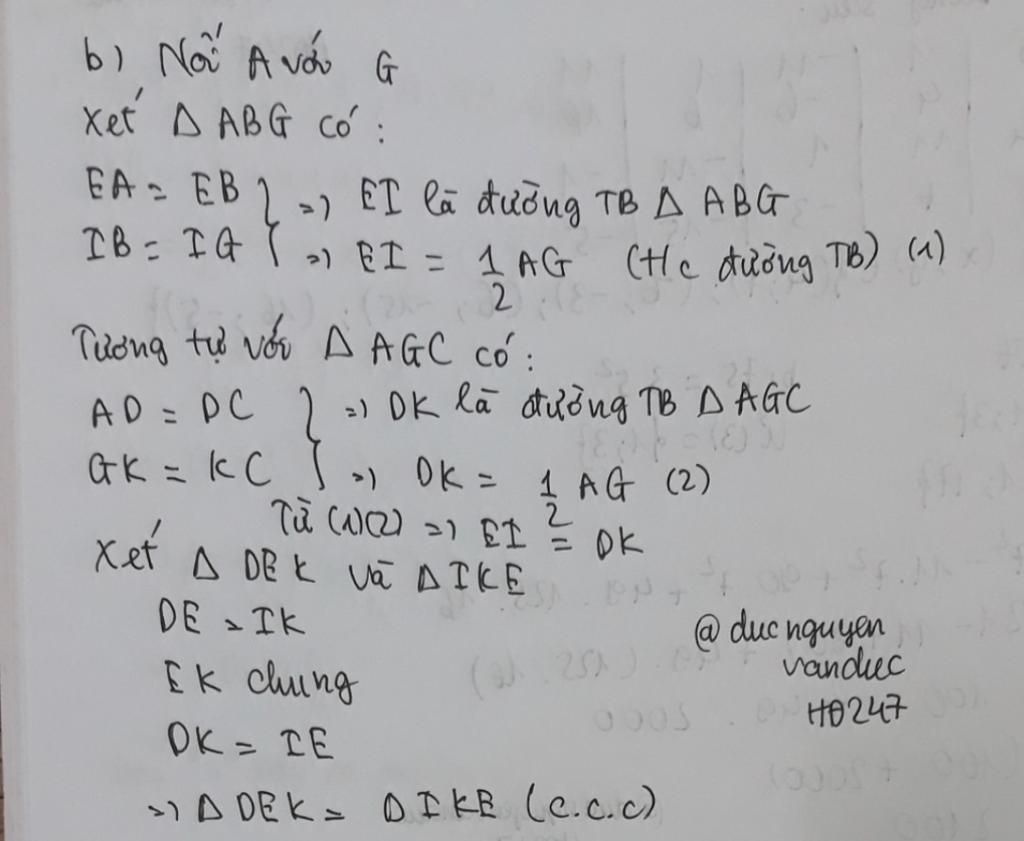 b) Nối A với G
Xét Δ ABG có:
EA = EB } => EI là đường TB Δ ABG
IB = IG } => EI = 1/2 AG (Hc đường TB) (1)
Tương tự với Δ AGC có:
AD = DC } => DK là đường TB Δ AGC
GK = KC } => DK = 1/2 AG (2)
Từ (1)(2) => EI = DK
Xét Δ DEK và Δ IKE
DE = IK
EK chung
DK = IE
=> Δ DEK = Δ IKE (c.c.c)
@ducnguyen
vanduc
H0247